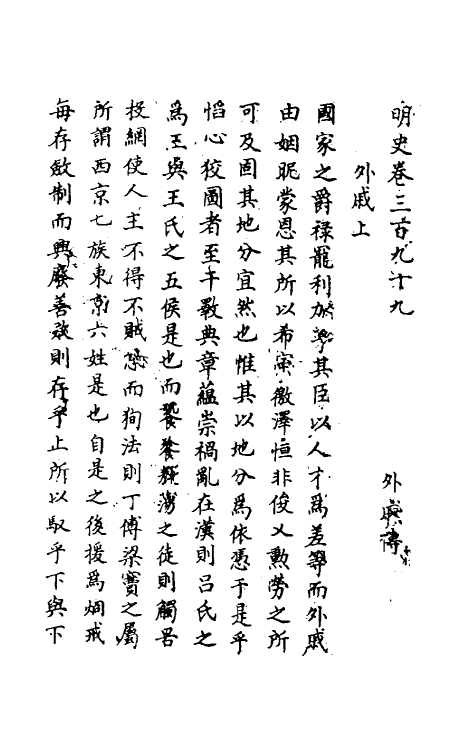 明史卷三百九十九
外戚傳
外戚上
國家之爵祿寵利加學其臣以人才爲差等而外戚
由姻昵蒙恩其所以希寅徼澤恒非俊乂勲勞之所
可及固其地分宜然也惟其以地分爲依憑于是乎
慆心狡圖者至干斁典章蘊崇禍亂在漢則吕氏之
爲王與王氏之五侯是也而饕餮輕蕩之徒則觸罟
投網使人主不得不賊恩而狥法則丁傅梁竇之屬
所謂西京七族東京六姓是也自是之後援爲炯戒
每存斂制而興廢善敗則存乎上所以馭乎下與下